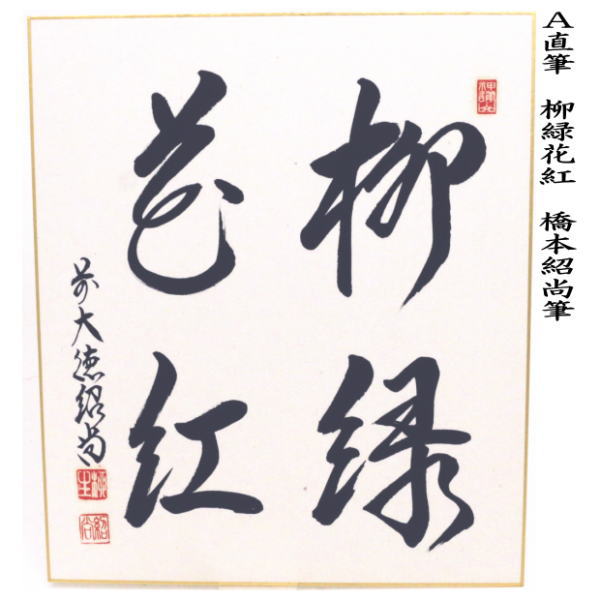 A直筆 柳緑花紅 橋本紹尚筆
柳緑
花紅
前大徳紹尚